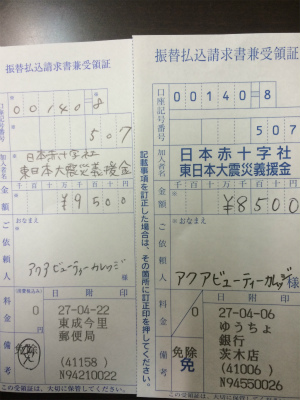 振替払込請求書兼受領証
口座記号番号
00140=8
507
加入者名
日本赤十字社
東日本大震災義援金
金額
千百十万千百十円
¥9500
ご依頼人
おなまえ
アクアビューティーカレッジ
様
料金
(消費税込み)
0
円
日附印
27-04-22
東成今里
郵便局
(41158)
N94210022
備考
この受領証は、大切に保管してください。
記載事項を訂正した場合は、その箇所に訂正印を押してください。
振替払込請求書兼受領証
口座記号番号
00140=8
507
加入者名
日本赤十字社
東日本大震災義援金
金額
千百十万千百十円
¥8500
ご依頼人
おなまえ
アクアビューティーカレッジ
様
料金
0
円
日附印
27-04-06
ゆうちょ
銀行
茨木店
(41006)
N94550026
備考
免除
免
この受領証は、大切に保管してください。